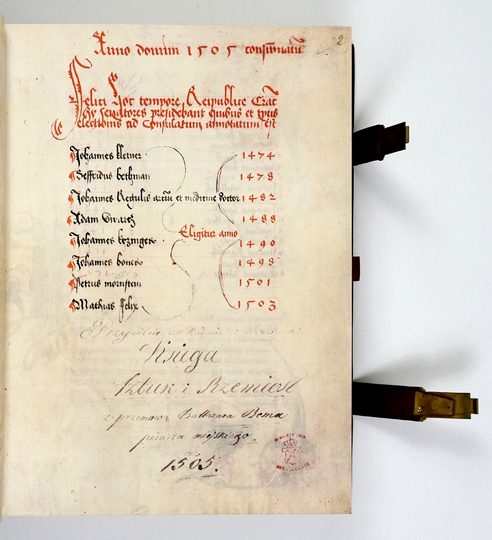 2
Anno domini 1505 consumatum
Felici hoc tempore Reipublice Crac
sex senatores presidebant quibus et tpus
electionis ad Consulatum annotatum est
Johannes kletner 1474
Seffridus bethman 1478
Johannes Regulis arciu et medicine doctor 1482
Adam 1488
Eligitur anno
Johannes 1490
Johannes boner 1498
Petrus mornsten 1501
Mathias 1503
Księga
Sztuk i Rzemiosł
z przemową Balthazara Bema
pisarza miejskiego.
1505.